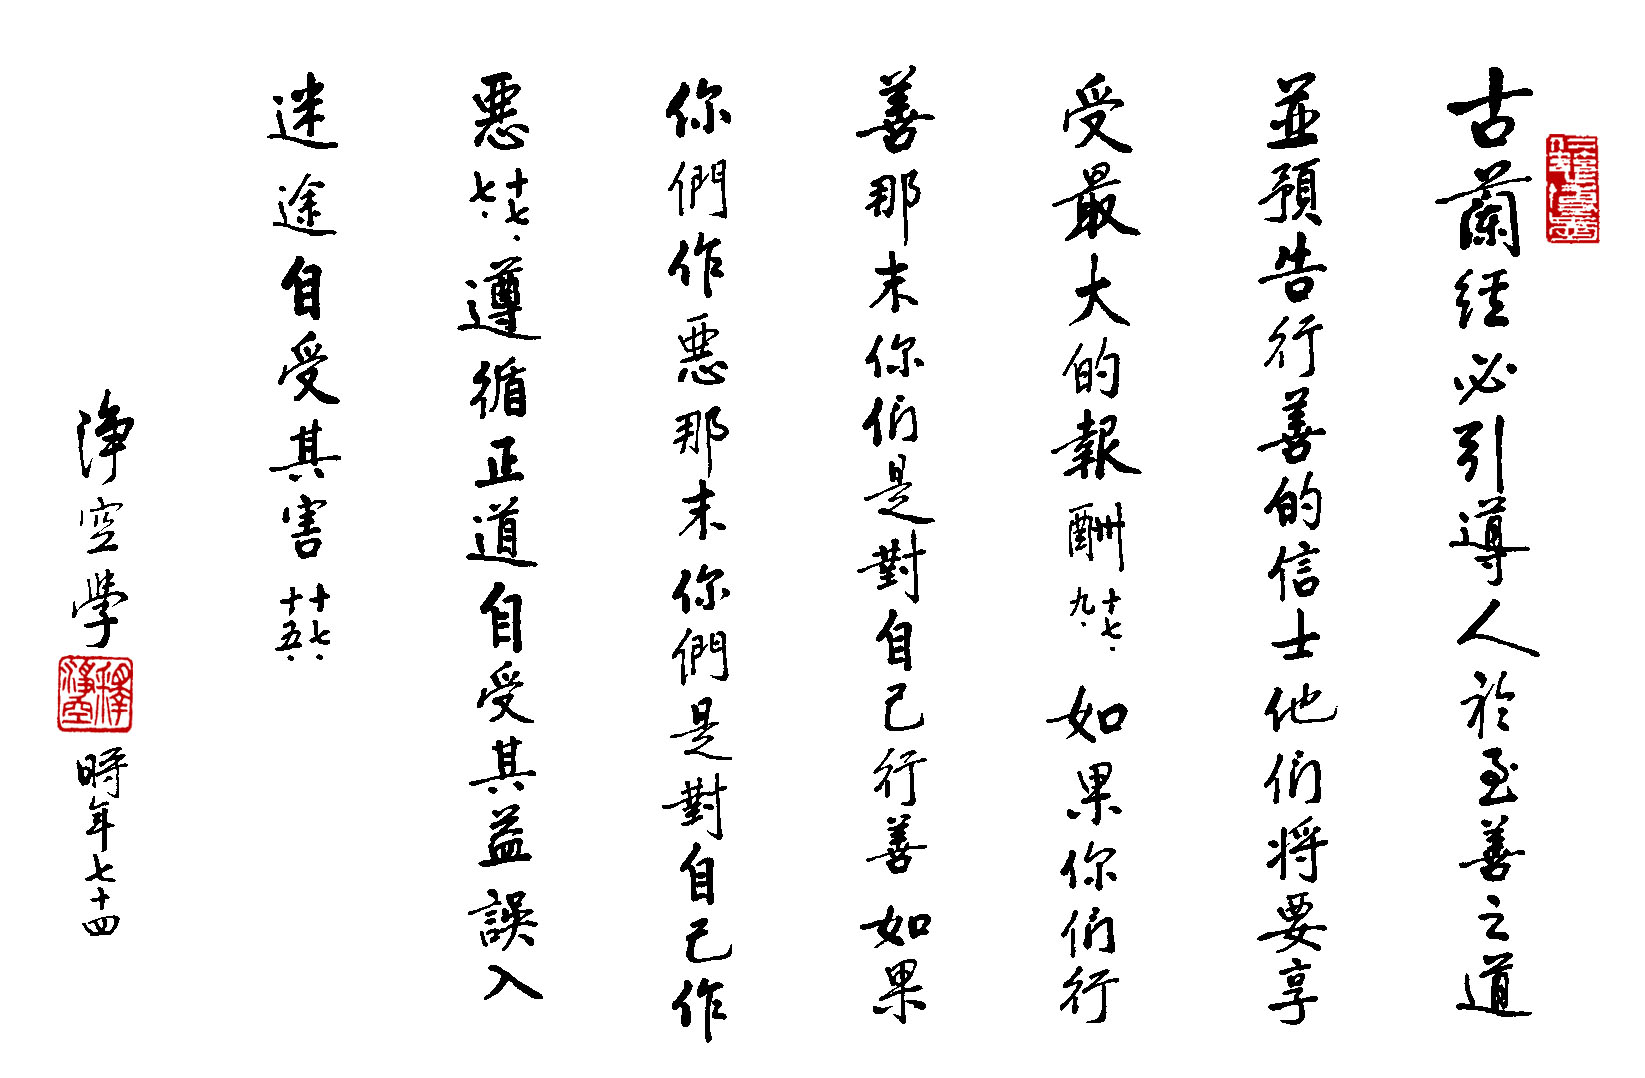 古蘭經必引導人於至善之道
並預告行善的信士他们将要享
受最大的報酬十七.九.如果你们行
善那末你们是對自己行善如果
你們作惡那末你們是對自己作
惡十七.七.遵循正道自受其益誤入
迷途自受其害十七.十五.
淨空學釋淨空時年七十四